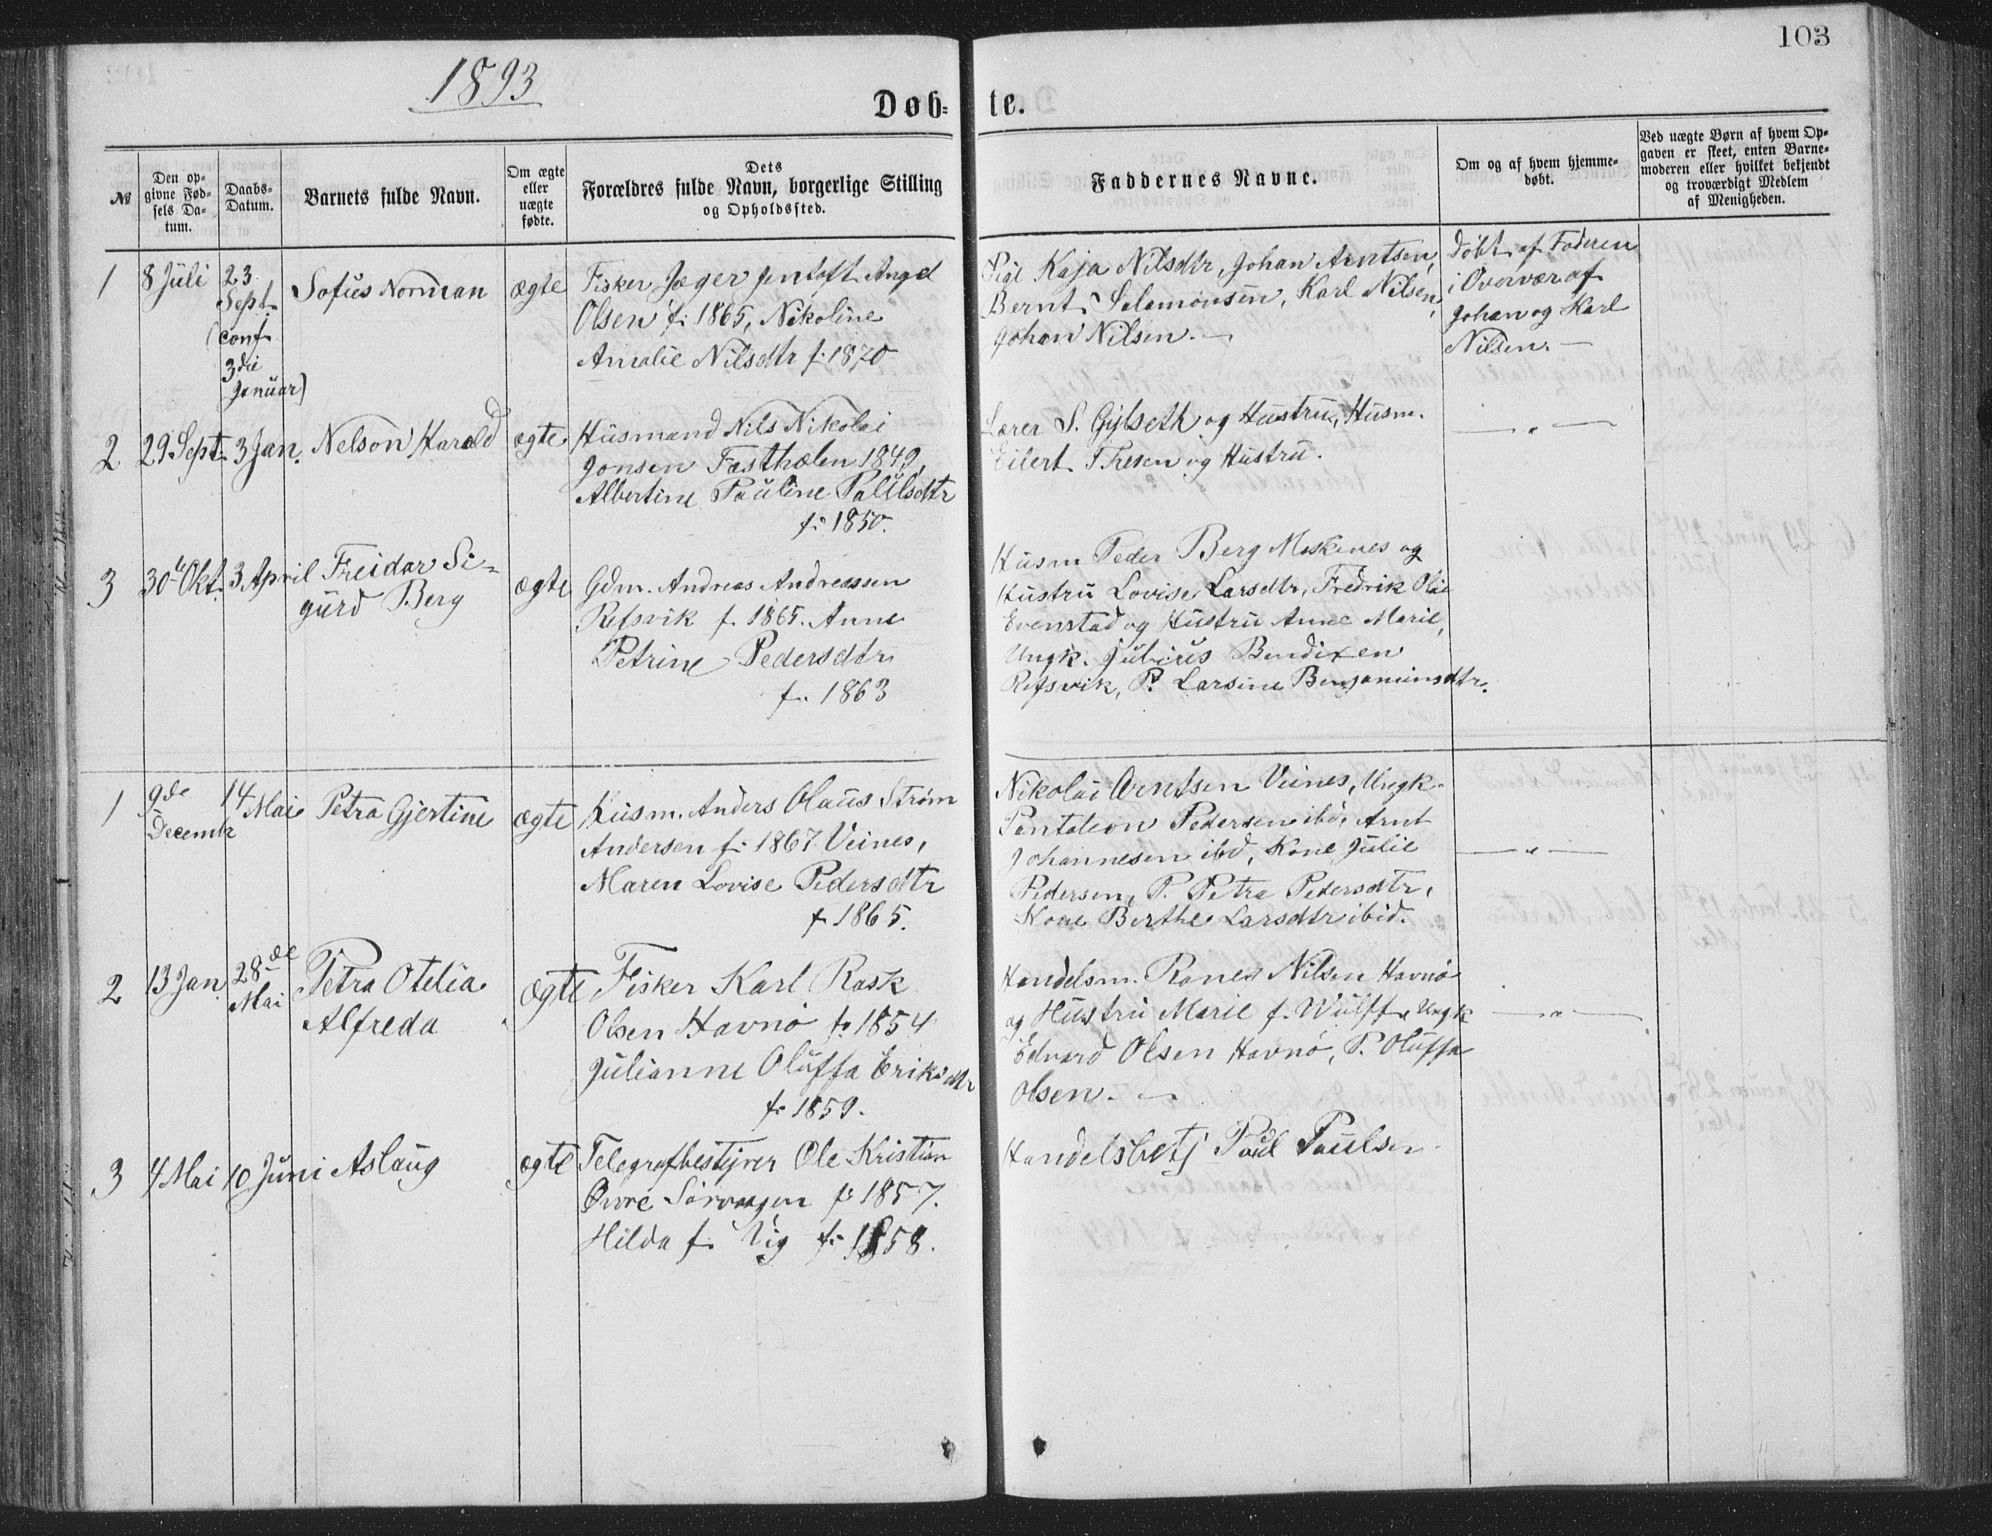 103
1893
Døb-
te.
№
Den op-
givne Fød-
sels Da-
tum.
Daabs-
Datum.
Barnets fulde Navn.
Om ægte
eller
uægte
fødte.
Dets
Forældres fulde Navn, borgerlige Stilling
og Opholdssted.
Faddernes Navne.
Om og af hvem hjemme-
døbt.
Ved uægte Børn af hvem Op-
gaven er skeet, enten Barne-
moderen eller hvilket bekjendt
og troværdigt Medlem
af Menigheden.
1
8 Juli
23
Sept.
(conf
3die
Januar)
Sofus Norman
ægte
Fisker Jæger Jentoft Angel
Olsen f: 1865, Nikoline
Amalie Nilsdtr f: 1870
Pige Kaja Nilsdtr, Johan Arntsen,
Bernt Salamonsen, Karl Nilsen,
Johan Nilsen. —
Døbt af Faderen
i Overvær af
Johan og Karl
Nilsen. —
2
29 Sept
3 Jan.
Nelson Harald
ægte
Husmand Nils Nikolai
Jonsen Fasthælen 1849,
Albertine Pauline Paulsdtr
f: 1850.
Lærer S. Gylseth og Hustru, Husm.
Eilert Thesen og Hustru.
— " —
3
30te Okt.
3 April
Freidar Si-
gurd Berg
ægte
Gdm. Andreas Andreassen
Refsvik f. 1865. Anne
Petrine Pedersdtr
f. 1863
Husm Peder Berg Moskenes og
Hustru Lovise Larsdtr, Fredrik Olai
Evenstad og Hustru Anne Marie,
Ungk. Julius Bendixen
Refsvik, P. Larsine Benjaminsdtr.
1
9de
Decembr
14
Mai
Petra Gjertine
ægte
Husm. Anders Olaus Strøm
Andersen f: 1867 Veines,
Maren Lovise Pedersdtr
f. 1865.
Nikolai Arntsen Veines, Ungk.
Pantaleon Pedersen ibd, Arnt
Johannesen ibd, Kone Julie
Pedersen, P. Petra Pedersdtr,
Kone Berthe Larsdtr ibid.
— " —
2
13 Jan.
28de
Mai
Petra Otelia
Alfreda
ægte
Fisker Karl Rask
Olsen Havnø f: 1854
Julianne Oluffa Eriksdtr
f: 1859.
Handelsm. Rones Nilsen Havnø
og Hustru Marie f. Wulff, Ungk
Edvard Olsen Havnø, P. Oluffa
Olsen. —
— " —
3
4 Mai
10 Juni
Aslaug
ægte
Telegrafbestyrer Ole Kristian
Øvre Sørvaagen f: 1857.
Hilda f. Vig f: 1858.
Handelsbetj Paul Paulsen